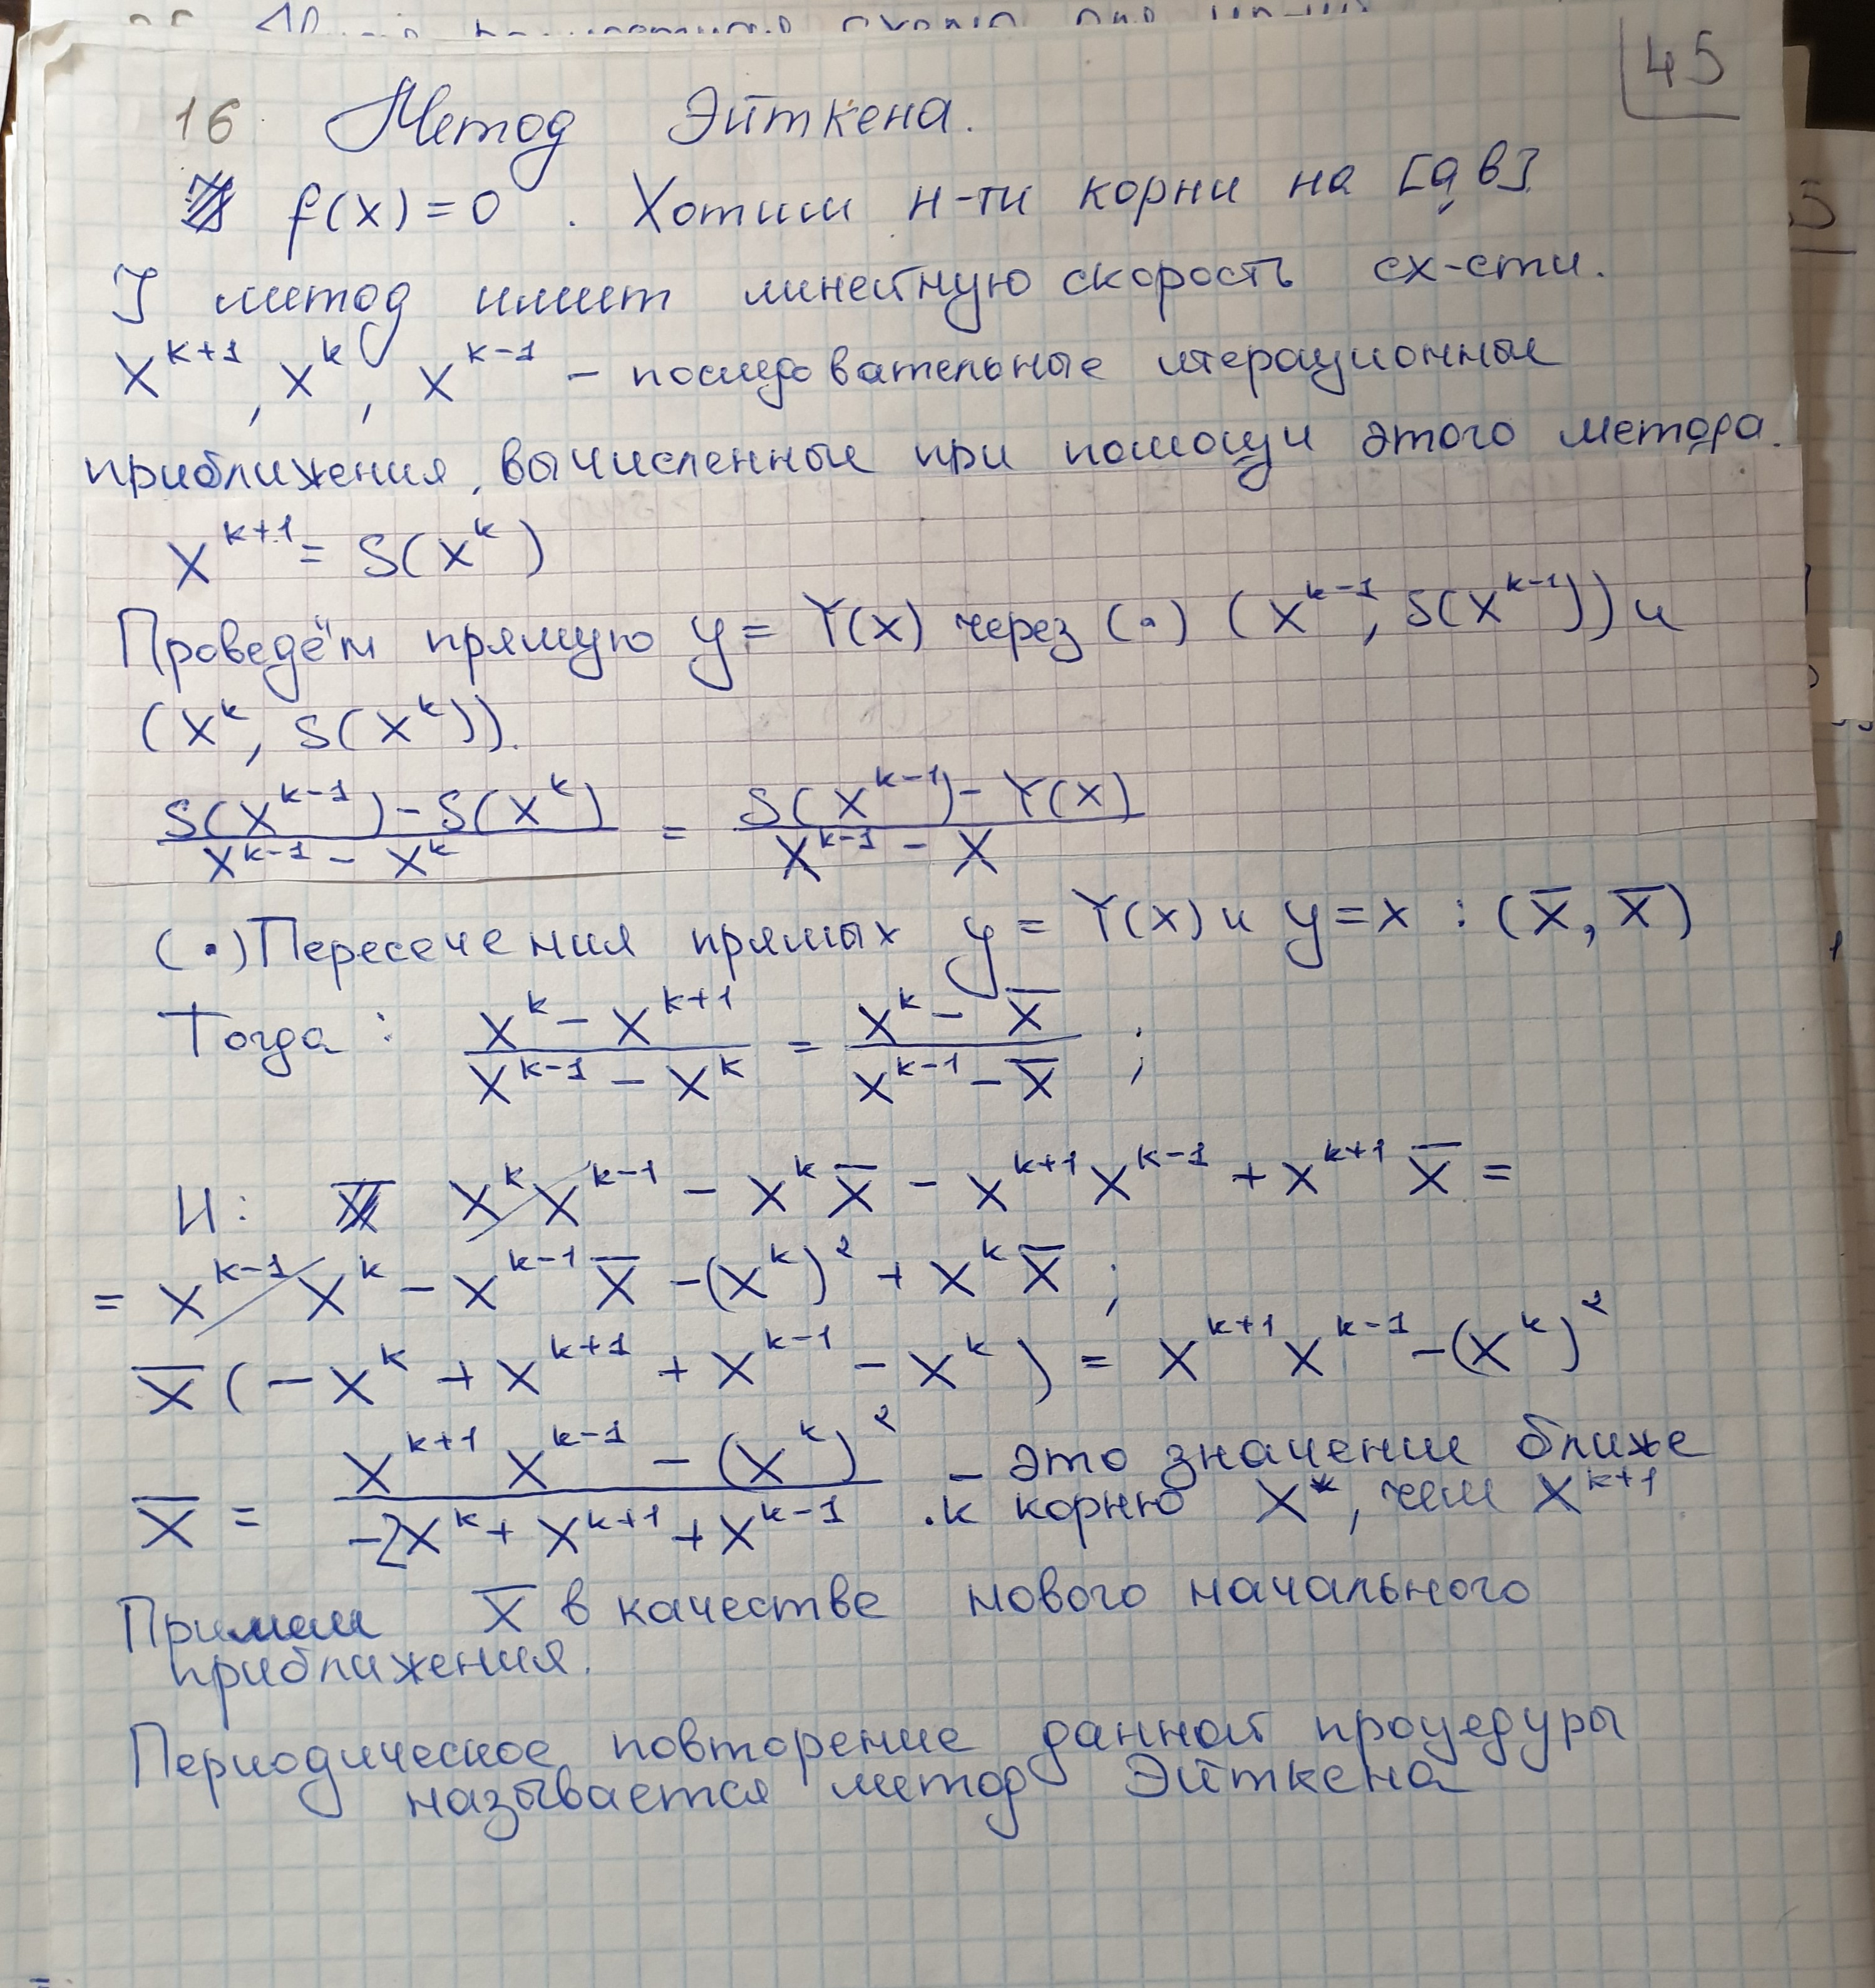 45
16. Метод Эйткена.
f(x) = 0. Хотим н-ти корни на [a, b].
J метод имеет линейную скорость сх-сти.
x^{k+1}, x^k, x^{k-1} – последовательные итерационные
приближения, вычисленные при помощи этого метода.
x^{k+1} = S(x^k)
Проведём прямую y = Y(x) через (•) (x^{k-1}, S(x^{k-1})) и
(x^k, S(x^k)).
(S(x^{k-1}) - S(x^k)) / (x^{k-1} - x^k) = (S(x^{k-1}) - Y(x)) / (x^{k-1} - x)
(•) Пересечения прямых y = Y(x) и y = x : (x̄, x̄)
Тогда: (x^k - x^{k+1}) / (x^{k-1} - x^k) = (x^k - x̄) / (x^{k-1} - x̄) ;
И: x^k x^{k-1} - x^k x̄ - x^{k+1} x^{k-1} + x^{k+1} x̄ =
= x^{k-1} x^k - x^{k-1} x̄ - (x^k)^2 + x^k x̄ ;
x̄ (- x^k + x^{k+1} + x^{k-1} - x^k) = x^{k+1} x^{k-1} - (x^k)^2
x̄ = (x^{k+1} x^{k-1} - (x^k)^2) / (-2x^k + x^{k+1} + x^{k-1}) – это значение ближе
к корню x*, чем x^{k+1}
Примем x̄ в качестве нового начального
приближения.
Периодическое повторение данной процедуры
называется метод Эйткена